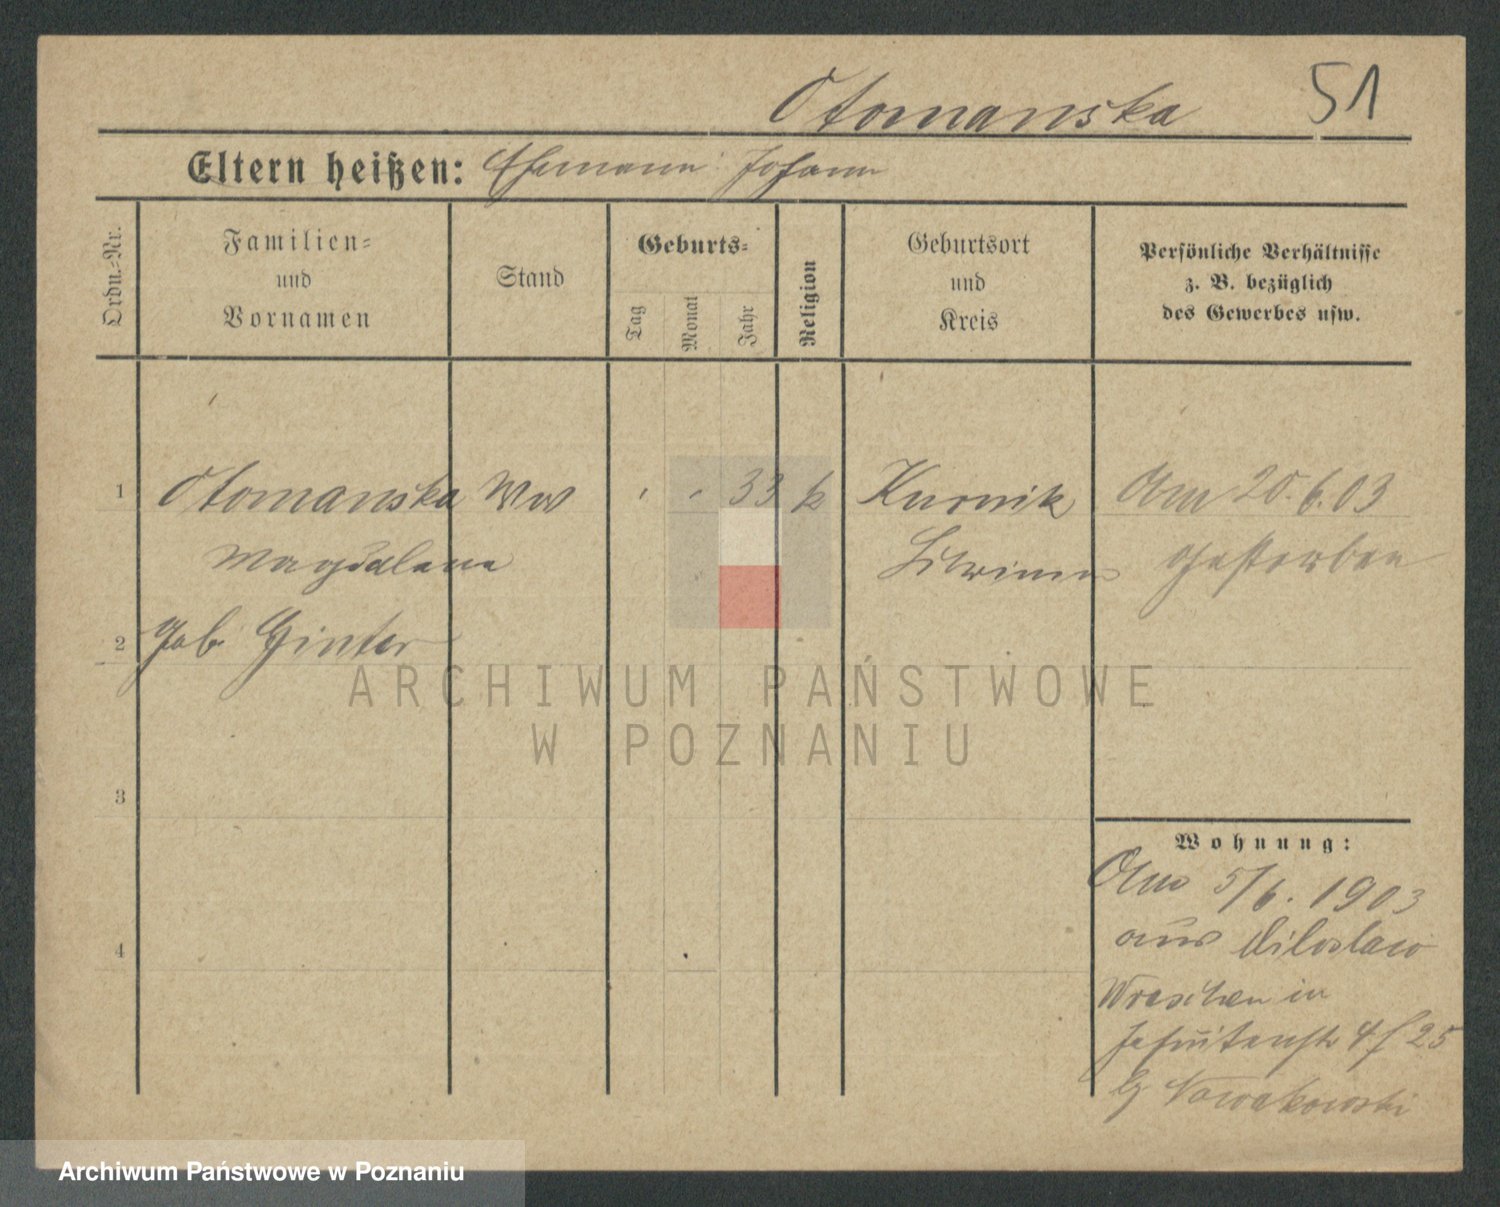 Otomanska 51
Eltern heißen: Ehemann: Johann
Ordn.-Nr.
Familien-
und
Vornamen
Stand
Geburts-
Tag
Monat
Jahr
Religion
Geburtsort
und
Kreis
Persönliche Verhältnisse
z. B. bezüglich
des Gewerbes usw.
1 Otomanska Ww 33 k Kurnik Am 20.6.03
Magdalena gestorben
2 Geb Ginter
3
4
Wohnung:
Am 5/6. 1903
aus Miloslaw
Wreschen in
Jesuitenstr 4 25
Nowakowski
ARCHIWUM PAŃSTWOWE
W POZNANIU
Archiwum Państwowe w Poznaniu